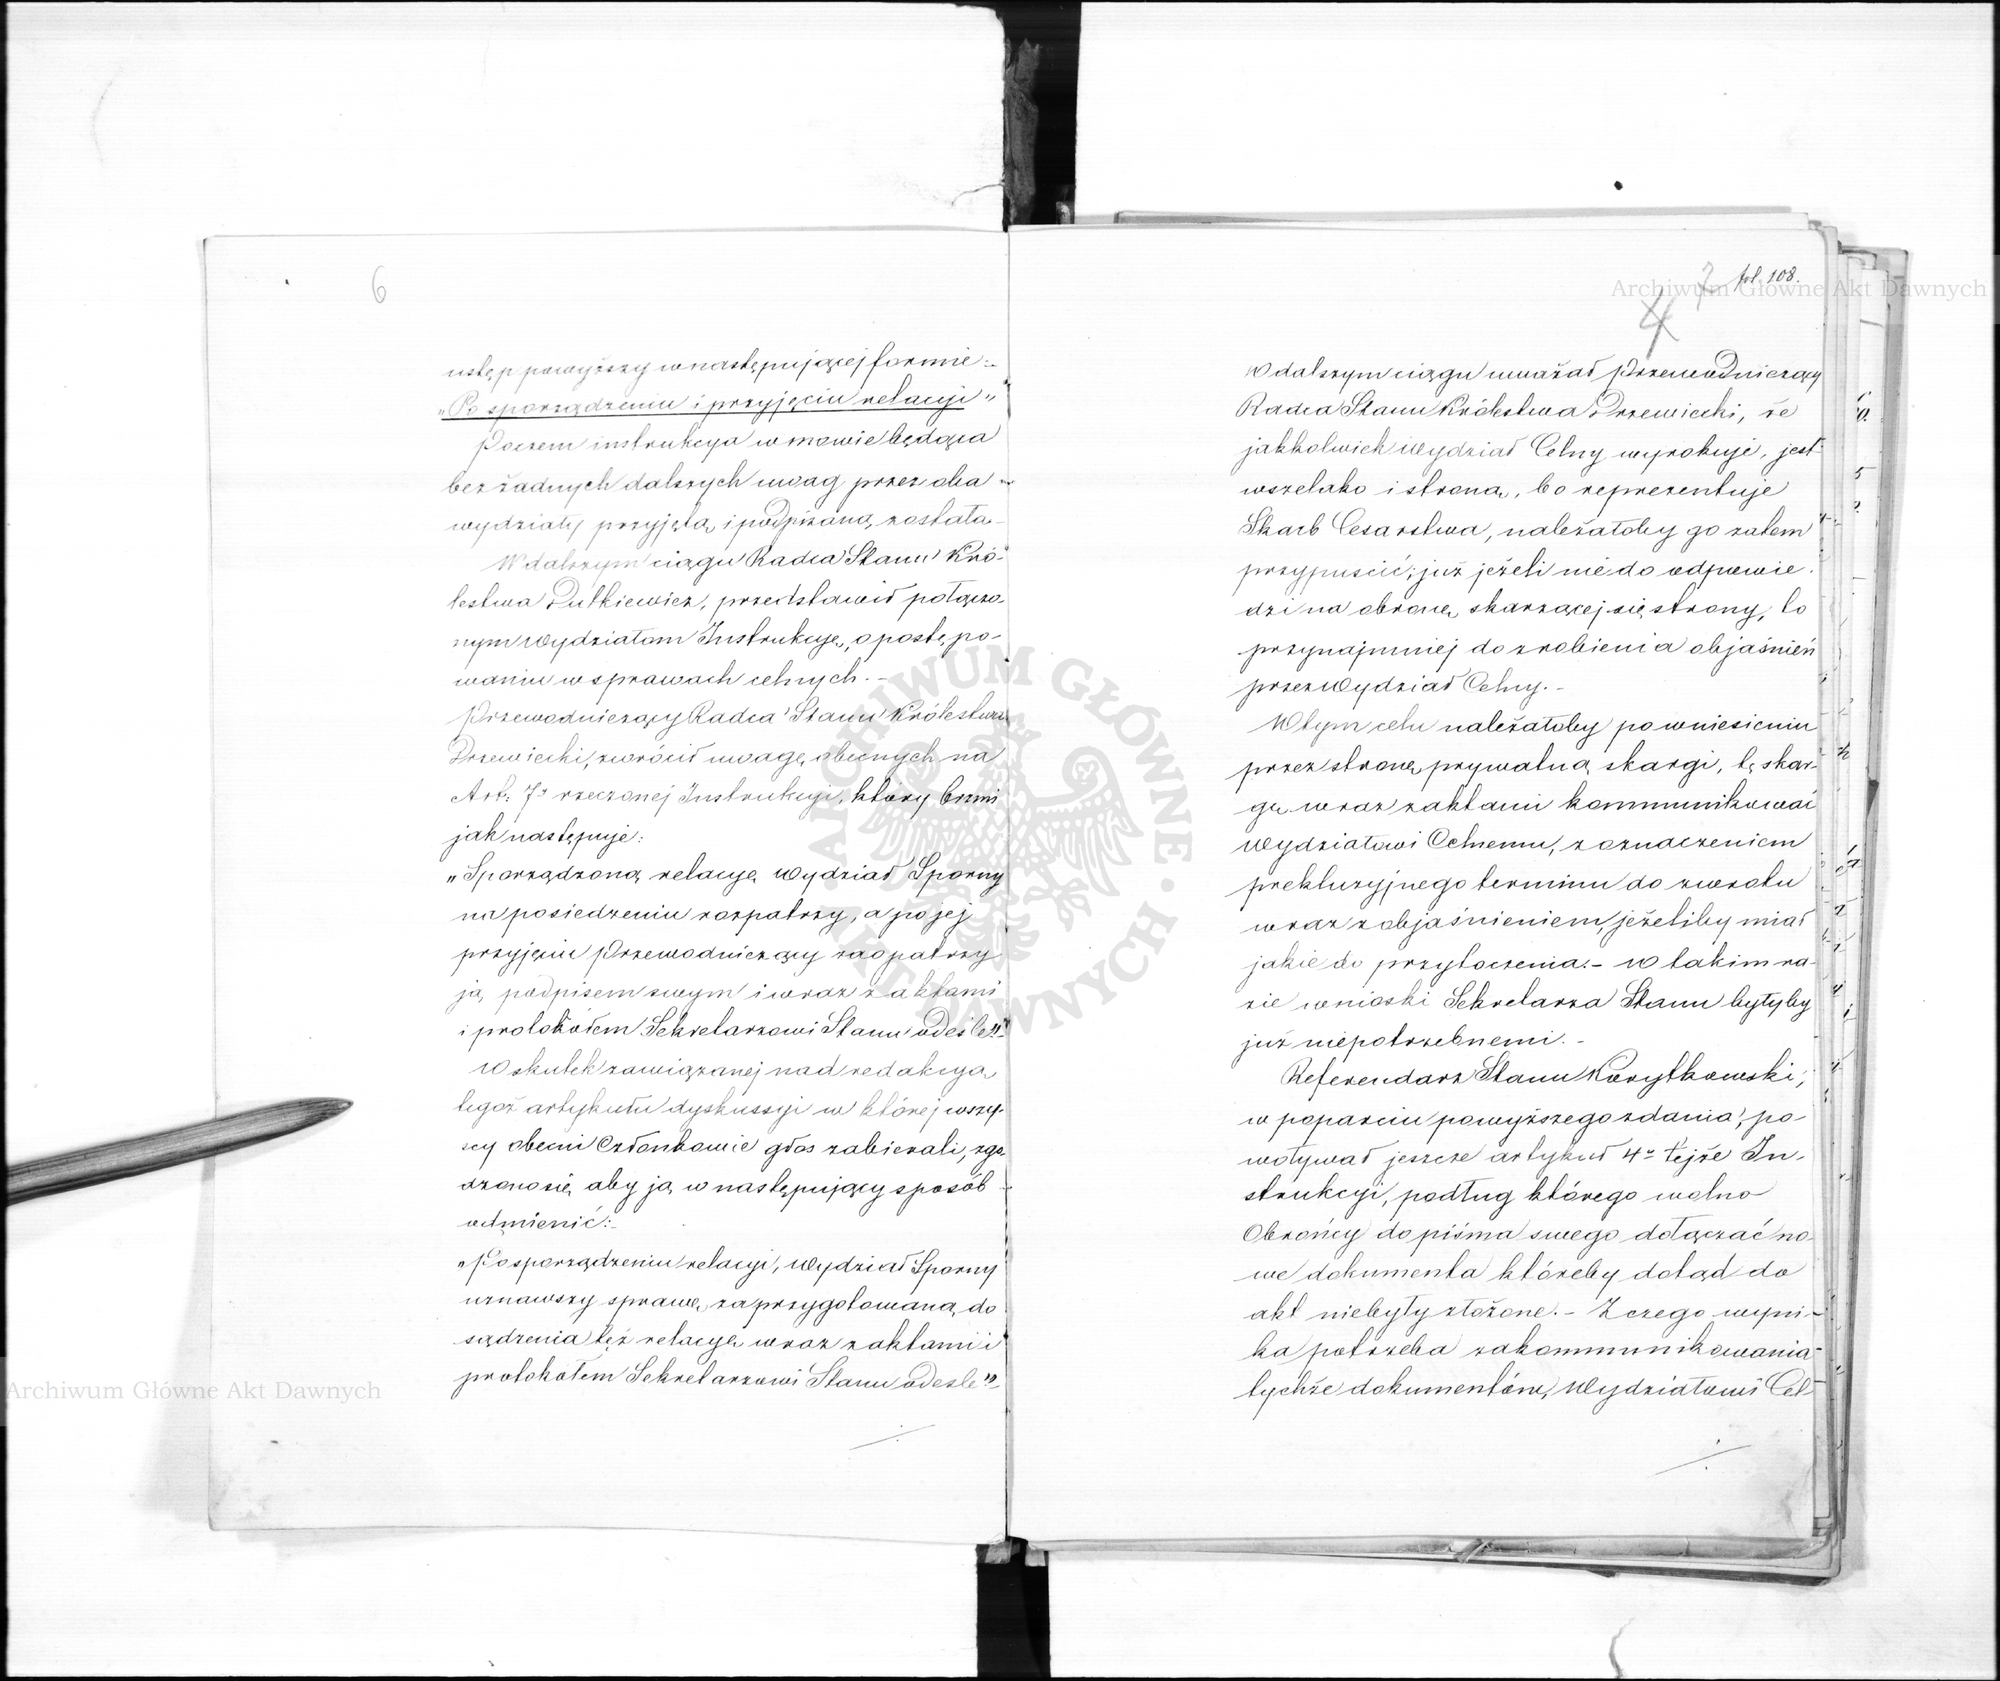 6
ustęp powyższy w następującej formie:-
„Po sporządzeniu i przyjęciu relacyi"
Poczem instrukcya w mowie będąca
bez żadnych dalszych uwag przez oba
wydziały przyjętą i podpisaną została.-
W dalszym ciągu Radca Stanu Kró-
lestwa Dutkiewicz, przedstawił połączo-
nym Wydziałom Instrukcyę, o postępo-
waniu w sprawach celnych.-
Przewodniczący Radca Stanu Królestwa
Drzewiecki, zwrócił uwagę obecnych na
Art: 7y rzeczonej Instrukcyi, który brzmi
jak następuje:
„Sporządzoną relacyę Wydział Sporny
na posiedzeniu rozpatrzy, a po jej
przyjęciu Przewodniczący zaopatrzy
ją podpisem swym i wraz z aktami
i protokółem Sekretarzowi Stanu odeśle"-
W skutek zawiązanej nad redakcyą
tegoż artykułu dyskussyi w której wszy-
scy obecni Członkowie głos zabierali, zgo-
dzono się aby ją w następujący sposób
odmienić:-
„Po sporządzeniu relacyi, Wydział Sporny
uznawszy sprawę za przygotowaną do
sądzenia tęż relacyę wraz z aktami i
protokołem Sekretarzowi Stanu odeśle"-
fol. 108.
4
W dalszym ciągu uważał Przewodniczący
Radca Stanu Królestwa Drzewiecki, że
jakkolwiek Wydział Celny wyrokuje, jest
wszelako i stroną, bo reprezentuje
Skarb Cesarstwa, należałoby go zatem
przypuścić, już jeżeli nie do odpowie-
dzi na obronę skarżącej się strony, to
przynajmniej do zrobienia objaśnień
przez Wydział Celny.-
W tym celu należałoby po wniesieniu
przez stronę prywatną skargi, tę skar-
gę wraz z aktami kommunikować
Wydziałowi Celnemu, z oznaczeniem
prekluzyjnego terminu do zwrotu
wraz z objaśnieniem, jeżeliby miał
jakie do przytoczenia.- W takim ra-
zie wnioski Sekretarza Stanu byłyby
już niepotrzebnemi.-
Referendarz Stanu Korytkowski,
w poparciu powyższego zdania, po-
woływał jeszcze artykuł 4y tejże In-
strukcyi, podług którego wolno
Obrońcy do pisma swego dołączać no-
we dokumenta któreby dotąd do
akt niebyły złożone.- Z czego wyni-
ka potrzeba zakommunikowania
tychże dokumentów, Wydziałowi Cel-
Archiwum Główne Akt Dawnych
Archiwum Główne Akt Dawnych
ARCHIWUM GŁÓWNE AKT DAWNYCH